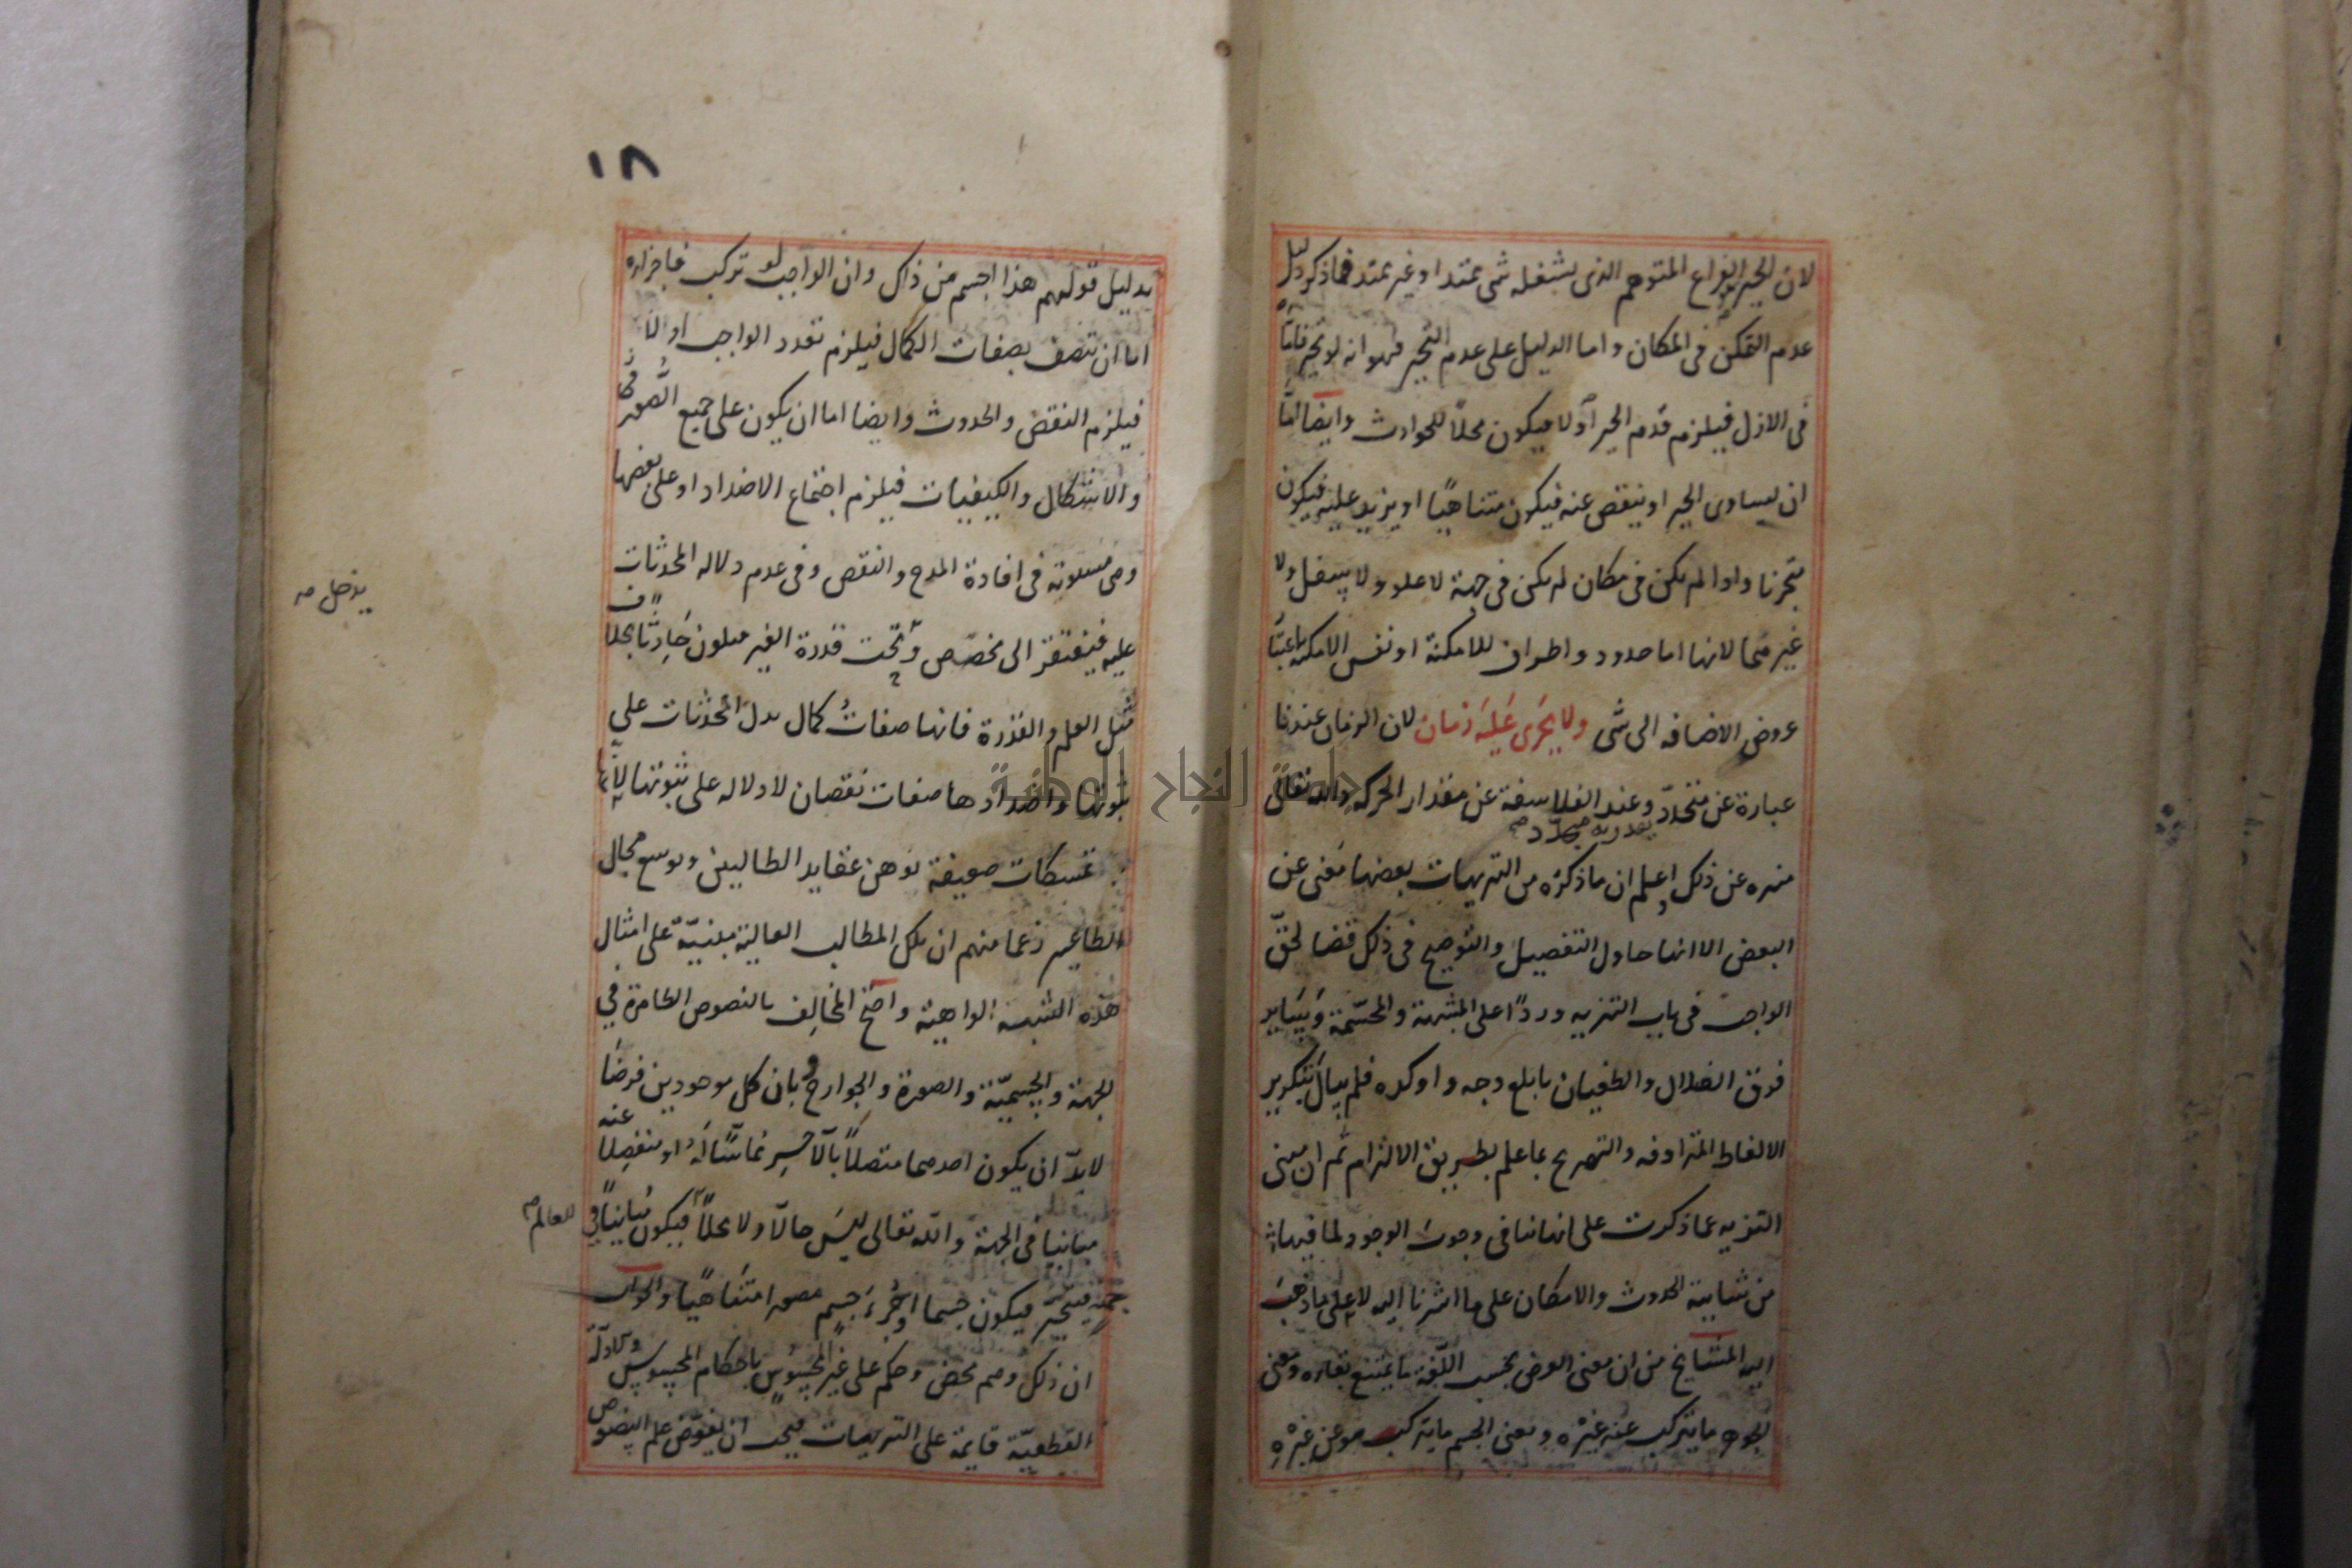 لان الحيز الفراغ المتوهم الذى يشغله شى ممتد او غير ممتد فما ذكر دليل
عدم التمكن فى المكان واما الدليل على عدم التحيز فهو انه لو تحيز فاما
فى الازل فيلزم قدم الحيز أو لا فيكون محلاً للحوادث وايضا امّا
ان يساوى الحيز او ينقص عنه فيكون متناهيًا او يزيد عليه فيكون
متجزئا واذا لم يكن فى مكان لم يكن فى جهة لا علو ولا سفل ولا
غيرهما لانها اما حدود واطراف للامكنة او نفس الامكنة باعتبا
عروض الاضافه الى شى ولا يَجرى عَليَه زمان لان الزمان عندنا
عبارة عن متجدد وعند الفلاسفة عن مقدار الحركة والله تعالى
يقدر به متجدد
منزه عن ذلك واعلم ان ما ذكره من التنزيهات بعضها مغنى عن
البعض الا انها حاول التفصيل والتوضيح فى ذلك قضا لحقّ
الواجب فى باب التنزيه وردًا على المشبهة والمجسّمة وَسَاير
فرق الضلال والطغيان بابلغ وجه واوكده فلم يبال بتكرير
الالفاظ المترادفه والتصريح بما علم بطريق الالتزام ثم ان مبنى
التنزيه عما ذكرت على انها تنافى وجوب الوجود لما فيها
من شايبة الحدوث والامكان على ما اشرنا اليه لا على ما ذهب
اليه المشايخ من ان معنى العرض بحسب اللّغة ما يمتنع بقاوه ومعنى
الجوهر ما يتركب عنه غيرُه ومعنى الجسم ما يتركب هو عن غيرْهِ
١٨
بدليل قولهم هذا اجسم من ذاك وان الواجب لو تركب فاجزاوه
اما ان تتصف بصفات الكمال فيلزم تعدد الواجب أو لا
فيلزم النقص والحدوث وايضا اما ان يكون على جميع الصُّور
والاشكال والكيفيات فيلزم اجتماع الاضداد او على بعضها
وهى مستوية فى افادة المدح والنقص وفى عدم دلاله المحدثات
يدخل صه
عليه فيفتقر الى مخصّص وتحت قدرة الغير فيكون حَادِثًا بخلا
ف
مثل العلم والقدرة فانها صفاتُ كمال يدل المحدثات على
ثبوتها واضدادها صفات نقصان لا دلاله على ثبوتها لانّها
تمسكات ضعيفة توهن عقايد الطالبين وتوسع مجال
الطاعنين زعما منهم ان تلك المطالب العالية مبنيّة على امثال
هَذه الشبه الواهية واحتج المخالِف بالنصوص الظاهرة فى
الجهة والجِسميّة والصورة والجوارح وبان كل موجودين فرضَا
لا بدّ ان يكون احدهما متصلاً بالآخر مماسًّا لَهُ او منفصِلا
عنه
مباينا فى الجهة والله تعالى ليسَ حالاّ ولا محلاًّ فيكون مُباينًا
للعالم صه
جهة فيتحيّز فيكون جسما او جُزءَ جسِم مصورا متناهيًا والجواب
ان ذلك وهم محض وحكم على غير المحسُوس باحكام المحسوس والادلّة
القطعيّة قايمة على التنزيهات فيجب ان يفوّض علم النصوص